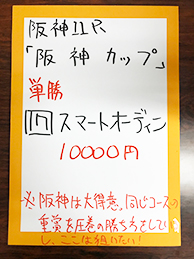 阪神11R
「阪神カップ」
単勝
17 スマートオーディン
10000円
※阪神は大得意、同じコースの
重賞を圧巻の勝ちっぷり
し、ここは狙いたい!